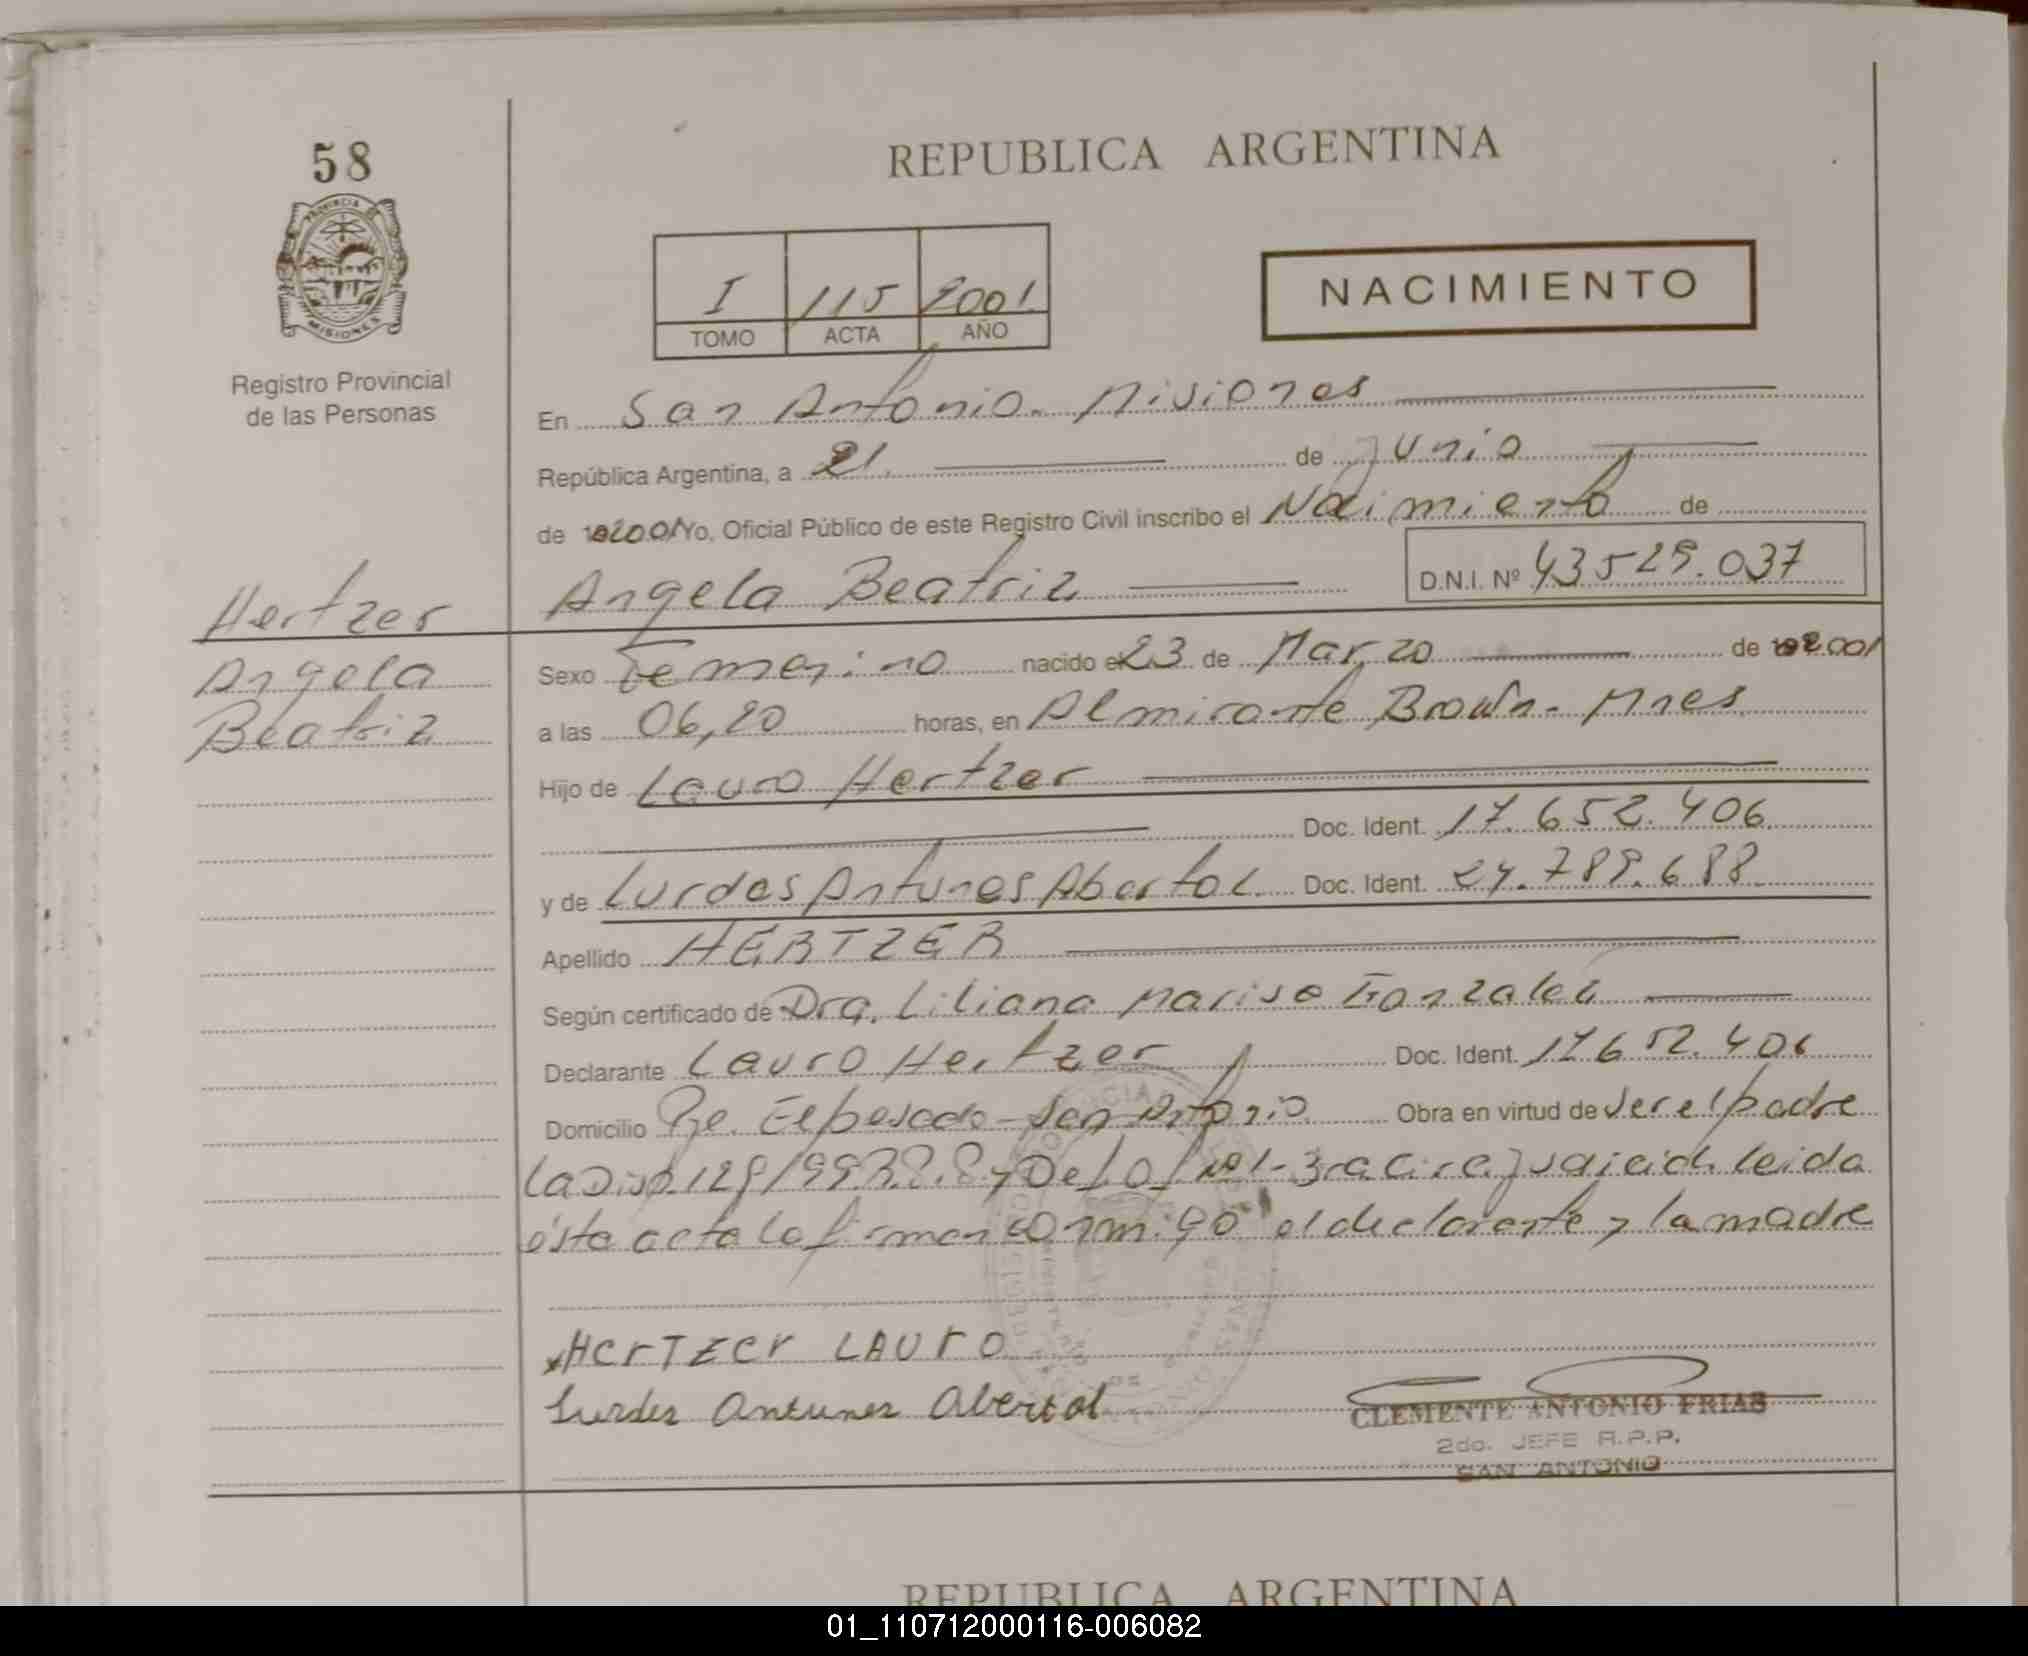 58
PROVINCIA DE
MISIONES
Registro Provincial
de las Personas
REPUBLICA ARGENTINA
I 115 2001
TOMO ACTA AÑO
NACIMIENTO
En San Antonio. Misiones
República Argentina, a 21. de Junio
de 2001 Yo, Oficial Público de este Registro Civil inscribo el Nacimiento de
Angela Beatriz D.N.I. Nº 43529.037
Hertzer
Angela
Beatriz
Sexo Femenino nacido el 23 de Marzo de 2001
a las 06,20 horas, en Almirante Brown - Mnes
Hijo de Lauro Hertzer
Doc. Ident. 17.652.406
y de Lurdes Antunes Abertol Doc. Ident. 24.789.688
Apellido HERTZER
Según certificado de Dra. Liliana Marisa Gonzalez
Declarante Lauro Hertzer Doc. Ident. 17652.406
Domicilio Pje. El pesado - San Antonio Obra en virtud de ser el padre
La Disp. 129/99 leida
ésta acta la firman conmigo el declarante y la madre
x HerTzer LAUrO
Lurdes Antunes Abertol
CLEMENTE ANTONIO FRIAS
2do. JEFE R.P.P.
SAN ANTONIO
REPUBLICA ARGENTINA
01_110712000116-006082